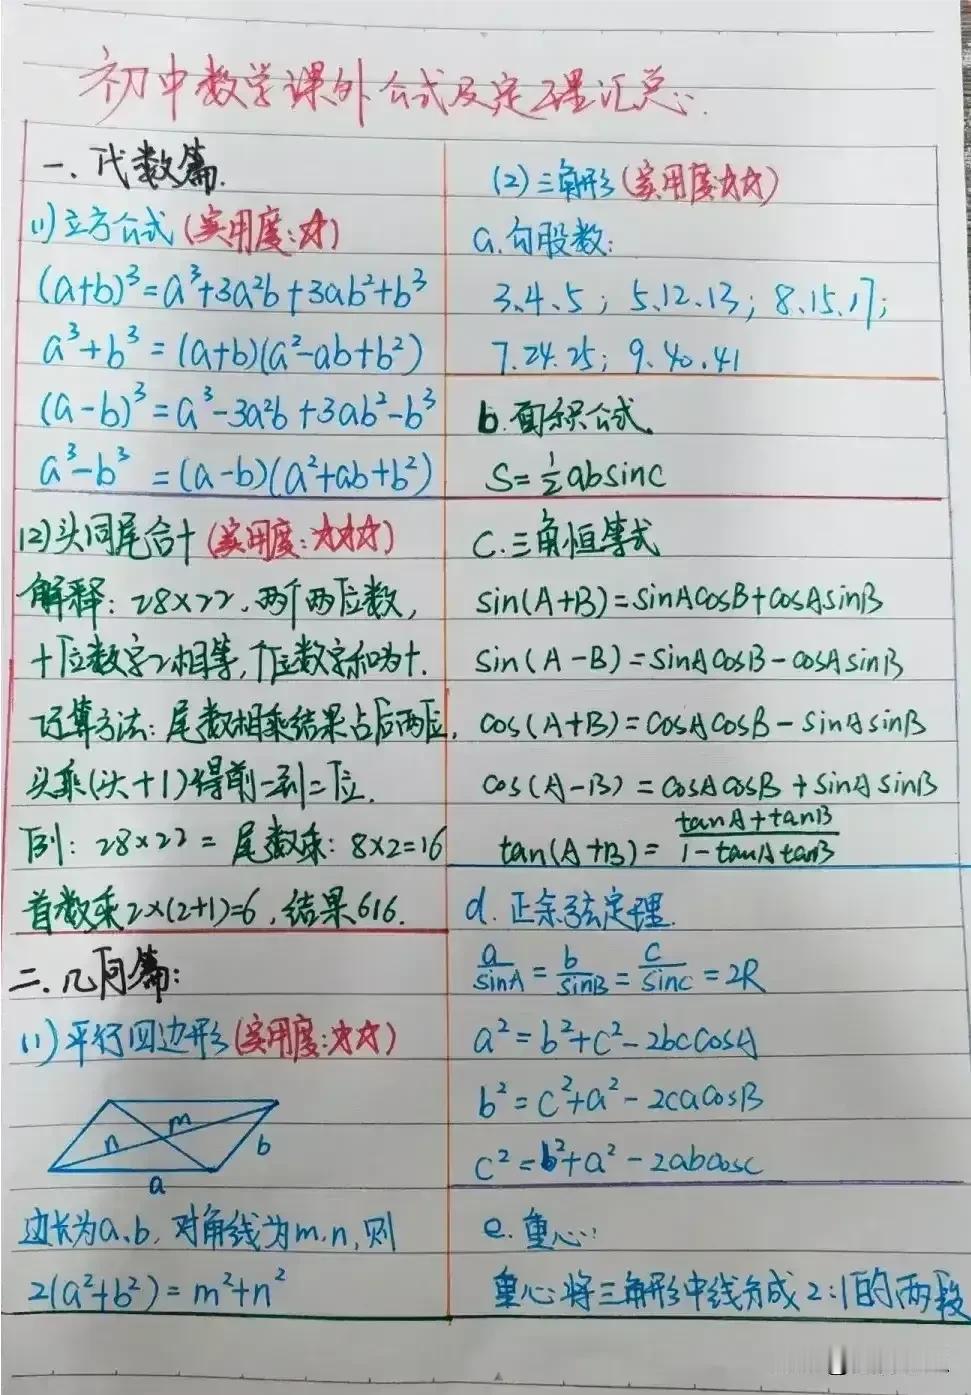 初中数学课外公式及定理汇总:
一、代数篇.
(1)立方公式(实用度:☆)
(a+b)³=a³+3a²b+3ab²+b³
a³+b³=(a+b)(a²-ab+b²)
(a-b)³=a³-3a²b+3ab²-b³
a³-b³=(a-b)(a²+ab+b²)
(2)头同尾合十(实用度:☆☆☆)
解释:28×22,两个两位数,
十位数字2相等,个位数字和为十.
计算方法:尾数相乘结果占后两位,
头乘(头+1)得前一到二位.
例:28×22=尾数乘:8×2=16
首数乘2×(2+1)=6,结果616.
二、几何篇:
(1)平行四边形(实用度:☆☆)
n m b
a
边长为a、b,对角线为m、n,则
2(a²+b²)=m²+n²
(2)三角形(实用度:☆☆)
a.勾股数:
3、4、5;5、12、13;8、15、17;
7、24、25;9、40、41
b.面积公式
S=½absinC
C.三角恒等式
sin(A+B)=sinAcosB+cosAsinB
sin(A-B)=sinAcosB-cosAsinB
cos(A+B)=cosAcosB-sinAsinB
cos(A-B)=cosAcosB+sinAsinB
tan(A+B)=(tanA+tanB)/(1-tanAtanB)
d.正余弦定理.
a/sinA=b/sinB=c/sinC=2R
a²=b²+c²-2bccosA
b²=c²+a²-2cacosB
c²=b²+a²-2abcosc
e.重心:
重心将三角形中线分成2:1的两段